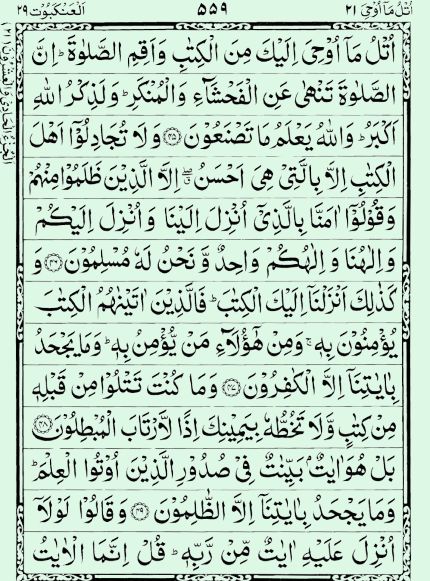 اُتْلُ مَاۤ اُوْحِیَ ۲۱
۵۵۹
اَلْعَنْكَبُوْت ۲۹
اُتْلُ مَاۤ اُوْحِیَ اِلَیْكَ مِنَ الْكِتٰبِ وَاَقِمِ الصَّلٰوةَ ؕ اِنَّ
الصَّلٰوةَ تَنْهٰی عَنِ الْفَحْشَآءِ وَالْمُنْكَرِ ؕ وَلَذِكْرُ اللهِ
اَكْبَرُ ؕ وَاللهُ یَعْلَمُ مَا تَصْنَعُوْنَ ﴿۴۵﴾ وَلَا تُجَادِلُوْۤا اَهْلَ
الْكِتٰبِ اِلَّا بِالَّتِیْ هِیَ اَحْسَنُ ۖ اِلَّا الَّذِیْنَ ظَلَمُوْا مِنْهُمْ
وَقُوْلُوْۤا اٰمَنَّا بِالَّذِیْۤ اُنْزِلَ اِلَیْنَا وَاُنْزِلَ اِلَیْكُمْ
وَاِلٰهُنَا وَاِلٰهُكُمْ وَاحِدٌ وَّنَحْنُ لَهٗ مُسْلِمُوْنَ ﴿۴۶﴾ وَ
كَذٰلِكَ اَنْزَلْنَاۤ اِلَیْكَ الْكِتٰبَ ؕ فَالَّذِیْنَ اٰتَیْنٰهُمُ الْكِتٰبَ
یُؤْمِنُوْنَ بِهٖ ۚ وَمِنْ هٰۤؤُلَآءِ مَنْ یُّؤْمِنُ بِهٖ ؕ وَمَا یَجْحَدُ
بِاٰیٰتِنَاۤ اِلَّا الْكٰفِرُوْنَ ﴿۴۷﴾ وَمَا كُنْتَ تَتْلُوْا مِنْ قَبْلِهٖ
مِنْ كِتٰبٍ وَّلَا تَخُطُّهٗ بِیَمِیْنِكَ اِذًا لَّارْتَابَ الْمُبْطِلُوْنَ ﴿۴۸﴾
بَلْ هُوَ اٰیٰتٌۢ بَیِّنٰتٌ فِیْ صُدُوْرِ الَّذِیْنَ اُوْتُوا الْعِلْمَ ؕ
وَمَا یَجْحَدُ بِاٰیٰتِنَاۤ اِلَّا الظّٰلِمُوْنَ ﴿۴۹﴾ وَقَالُوْا لَوْلَاۤ
اُنْزِلَ عَلَیْهِ اٰیٰتٌ مِّنْ رَّبِّهٖ ؕ قُلْ اِنَّمَا الْاٰیٰتُ